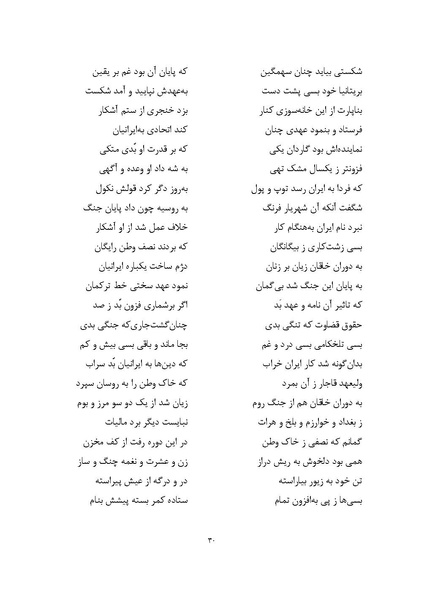 شکستی بیاید چنان سهمگین که پایان آن بود غم بر یقین
بریتانیا خود بسی پشت دست به‌عهدش نپایید و آمد شکست
بناپارت از این خانه‌سوزی کنار بزد خنجری از ستم آشکار
فرستاد و بنمود عهدی چنان کند اتحادی به‌ایرانیان
نماینده‌اش بود گاردان یکی که بر قدرت او بُدی متکی
فزونتر ز یکسال مشک تهی به شه داد او وعده و آگهی
که فردا به ایران رسد توپ و پول به‌روز دگر کرد قولش نکول
شگفت آنکه آن شهریار فرنگ به روسیه چون داد پایان جنگ
نبرد نام ایران به‌هنگام کار خلاف عمل شد از او آشکار
بسی زشت‌کاری ز بیگانگان که بردند نصف وطن رایگان
به دوران خاقان زیان بر زنان دژم ساخت یکباره ایرانیان
به پایان این جنگ شد بی‌گمان نمود عهد سختی خط ترکمان
که تاثیر آن نامه و عهد بَد اگر برشماری فزون بُد ز صد
حقوق قضاوت که تنگی بدی چنان‌گشت‌جاری‌که جنگی بدی
بسی تلخکامی بسی درد و غم بجا ماند و باقی بسی بیش و کم
بدان‌گونه شد کار ایران خراب که دین‌ها به ایرانیان بُد سراب
ولیعهد قاجار ز آن بمرد که خاک وطن را به روسان سپرد
به دوران خاقان هم از جنگ روم زیان شد از یک دو سو مرز و بوم
ز بغداد و خوارزم و بلخ و هرات نبایست دیگر برد مالیات
گمانم که نصفی ز خاک وطن در این دوره رفت از کف مخزن
همی بود دلخوش به ریش دراز زن و عشرت و نغمه چنگ و ساز
تن خود به زیور بیاراسته در و درگه از عیش پیراسته
بسی‌ها ز پی به‌افزون تمام ستاده کمر بسته پیشش بنام
۳۰